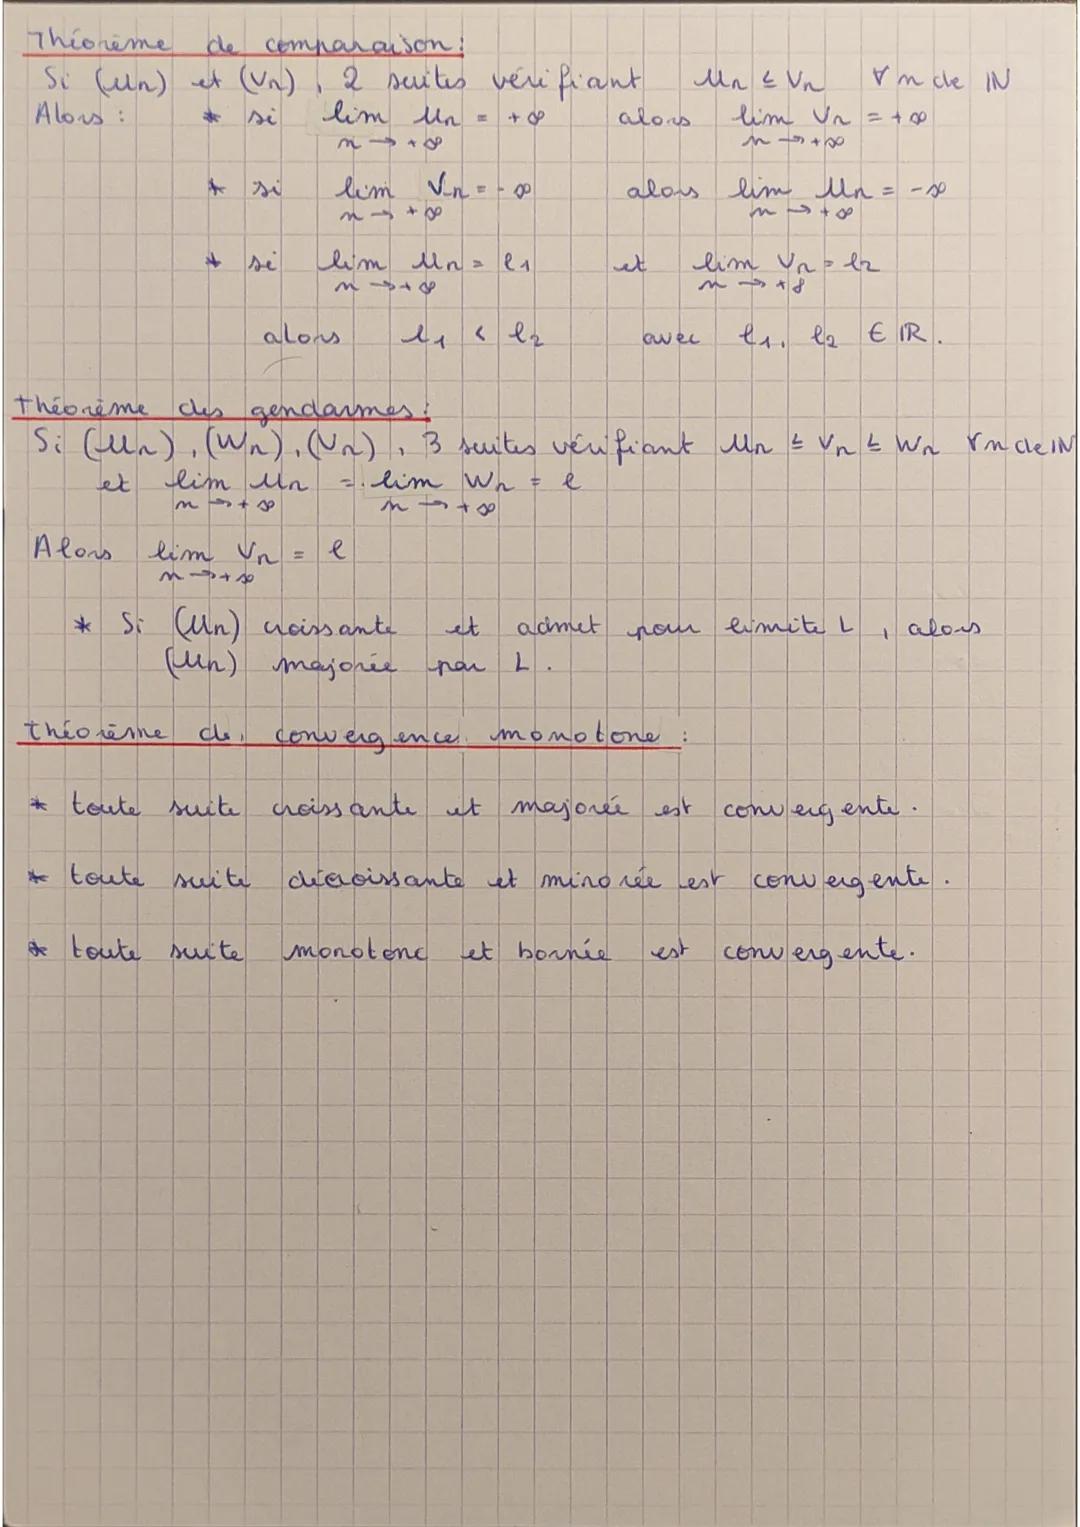 Théorème de comparaison :
Si (Un) et (Vn), 2 suites vérifiant Un ≤ Vn ∀ n de ℕ
Alors : * si lim Un = +∞ alors lim Vn = +∞
n → +∞ n → +∞
* si lim Vn = -∞ alors lim Un = -∞
n → +∞ n → +∞
* si lim Un = l1 et lim Vn = l2
n → +∞ n → +∞
alors l1 < l2 avec l1, l2 ∈ ℝ.
Théorème des gendarmes :
Si (Un), (Wn), (Vn), 3 suites vérifiant Un ≤ Vn ≤ Wn ∀ n de ℕ
et lim Un = lim Wn = l
n → +∞ n → +∞
Alors lim Vn = l
n → +∞
* Si (Un) croissante et admet pour limite L, alors
(Un) majorée par L.
théorème de convergence monotone :
* toute suite croissante et majorée est convergente.
* toute suite décroissante et minorée est convergente.
* toute suite monotone et bornée est convergente.